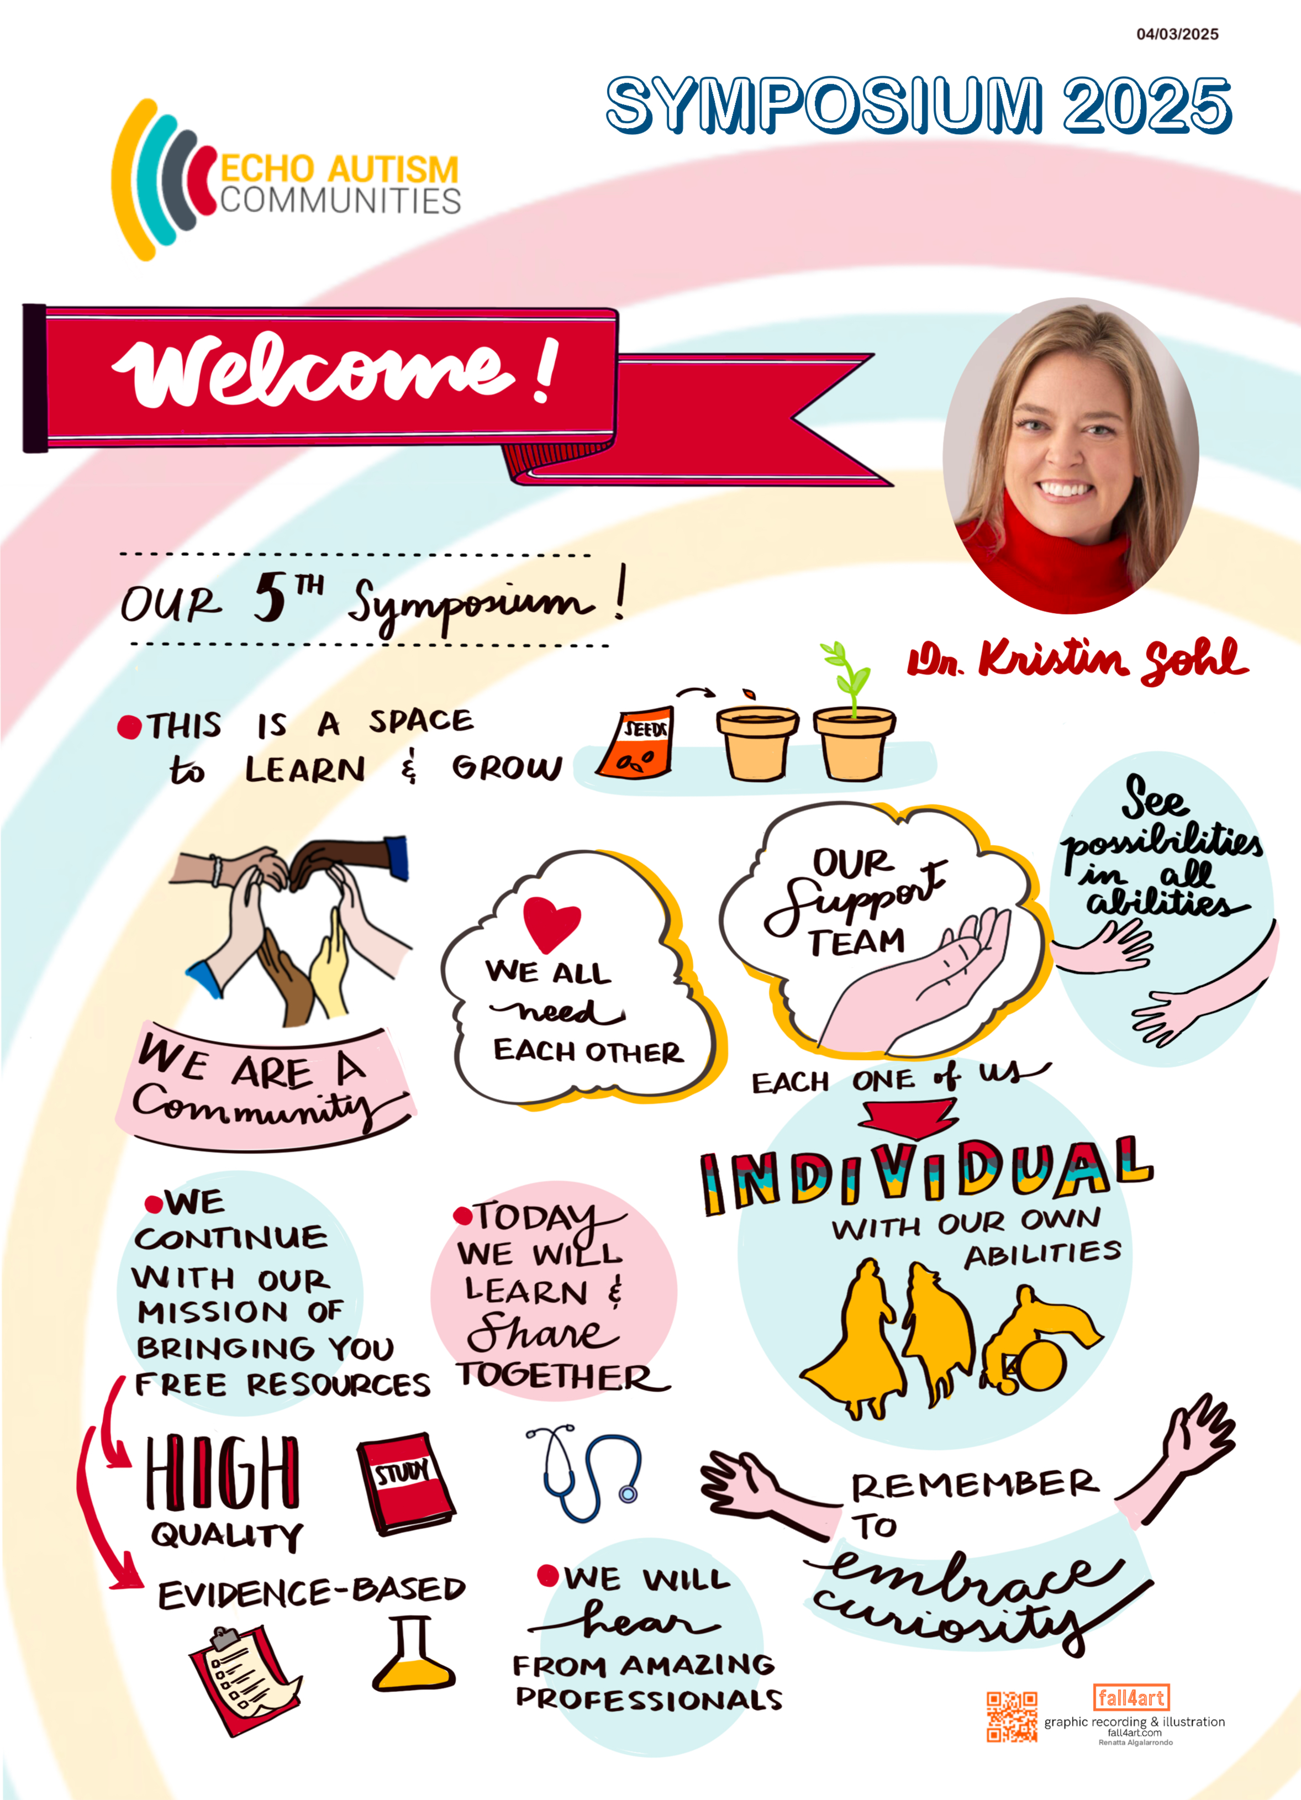 04/03/2025
SYMPOSIUM 2025
ECHO AUTISM
COMMUNITIES
Welcome!
OUR 5TH Symposium!
Dr. Kristin Sohl
THIS IS A SPACE
to LEARN & GROW
SEEDS
WE ARE A
Community
WE ALL
need
EACH OTHER
OUR
Support
TEAM
See
possibilities
in all
abilities
EACH ONE of us
INDIVIDUAL
WITH OUR OWN
ABILITIES
WE
CONTINUE
WITH OUR
MISSION OF
BRINGING YOU
FREE RESOURCES
HIGH
QUALITY
EVIDENCE-BASED
TODAY
WE WILL
LEARN &
Share
TOGETHER
STUDY
WE WILL
hear
FROM AMAZING
PROFESSIONALS
REMEMBER
TO
embrace
curiosity
fall4art
graphic recording & illustration
fall4art.com
Renatta Algalarrondo